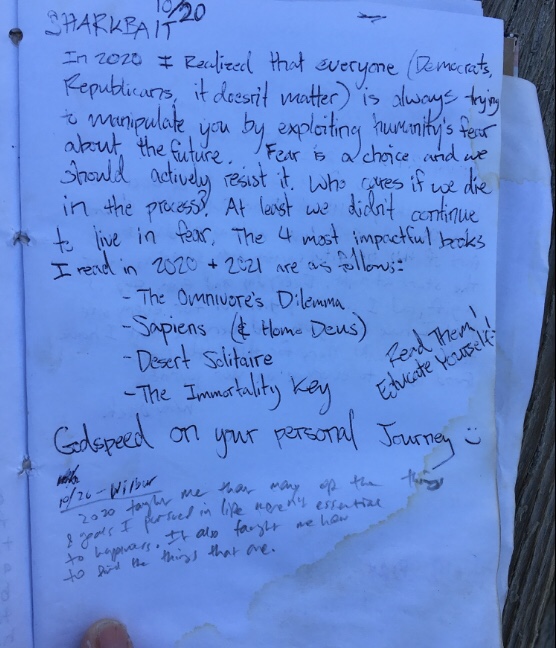 10/20
SHARKBAIT
In 2020 I Realized that everyone (Democrats,
Republicans, it doesn't matter) is always trying
to manipulate you by exploiting humanity's fear
about the future. Fear is a choice and we
should actively resist it. Who cares if we die
in the process? At least we didn't continue
to live in fear. The 4 most impactful books
I read in 2020 + 2021 are as follows:
- The Omnivore's Dilemma
- Sapiens (& Homo Deus)
- Desert Solitaire
- The Immortality Key
Read Them!
Educate Yourself!
Godspeed on your personal Journey :)
10/20 - Wilbur
2020 taught me that many of the things
& goals I pursued in life weren't essential
to happiness. It also taught me how
to find the things that are.